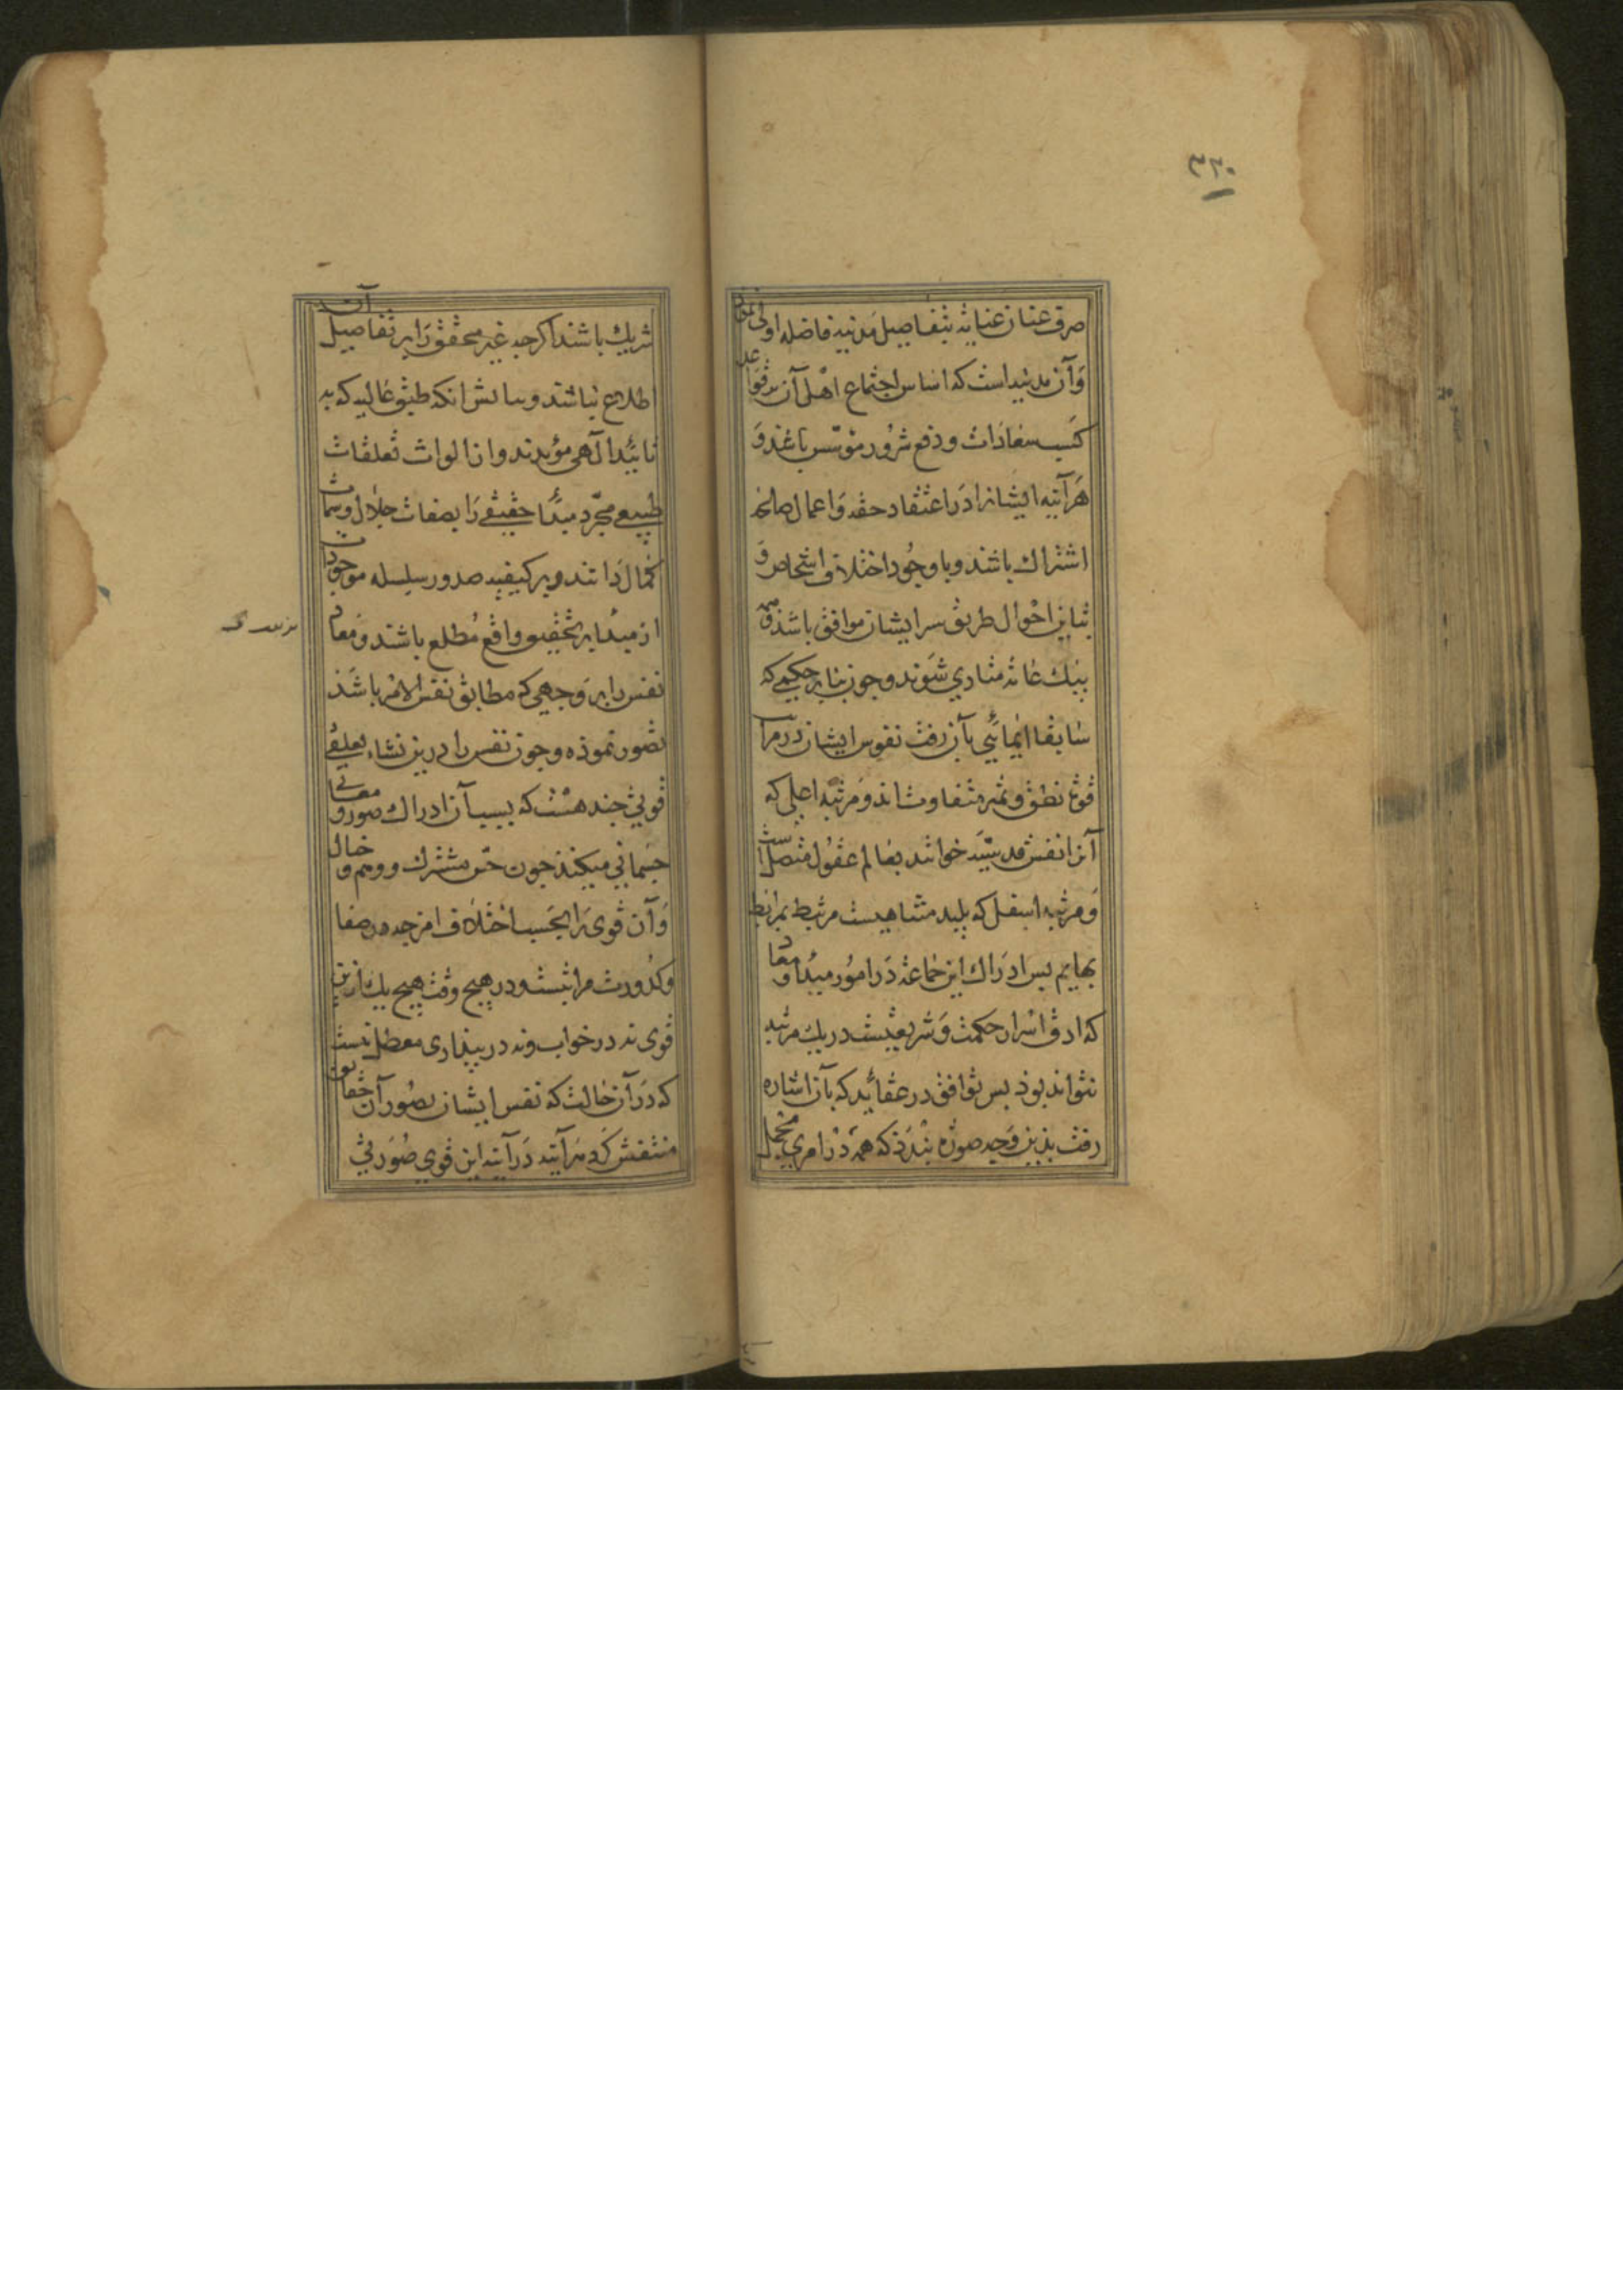 ۳۲۰
صرف عنان عنایه بتفاصیل مدنیه فاضله اولی نمود
وآن مدینه است که اساس اجتماع اهل آن بر قواعد
کسب سعادات ودفع شرور مؤسس باشد و
هرآینه ایشانرا در اعتقاد حقه واعمال صالحه
اشتراک باشد وبا وجود اختلاف اشخاص و
تباین احوال طریق سر ایشان موافق باشد وهمه
بیک غایه متادی شوند وچون بنابر حکمی که
سابقا ایمائی بآن رفت نفوس ایشان در مراتب
قوة نطق وتمیز متفاوت اند ومرتبه اعلی که
آنرا نفس قدسیه خوانند بعالم عقول متصل است
ومرتبه اسفل که پلید متناهیست مرتبط برابط
بهایم پس ادراک این جماعة در امور مبدا ومعاد
که ادق اسرار حکمت وشریعتست در یک مرتبه
نتواند بوذ پس توافق در عقائد که بآن اشاره
رفت بذین وجه صورة بندذ که همه در امری مجمل
شریک باشند اکرچه غیر محقق را بر تفاصیل آن
اطلاع نباشد وبیانش انکه طبقه عالیه که به
تائید الهی مؤیدند واز الواث تعلقات
طبیعی مجرد مبدأ حقیقی را بصفات جلال وسمات
کمال دانند وبر کیفیه صدور سلسله موجودات
از مبدا بر تحقیق واقع مطلع باشند ومعاد
نفس را بر وجهی که مطابق نفس الامر باشذ
تصور نموذه وچون نفس را درین نشاء تعلقی
قوتی چند هست که بسبب آن ادراک صور ومعانی
جسمانی میکنذ چون حس مشترک ووهم وخیال
وآن قوی را بحسب اختلاف امزجه در صفا
وکدورت مراتبست ودر هیچ وقت هیچ یک ازین
قوی نه در خواب ونه در بیذاری معطل نیست
که در آن حالت که نفس ایشان بصور آن حقایق
منتقش کردد هرآینه در آینه این قوی صورتی